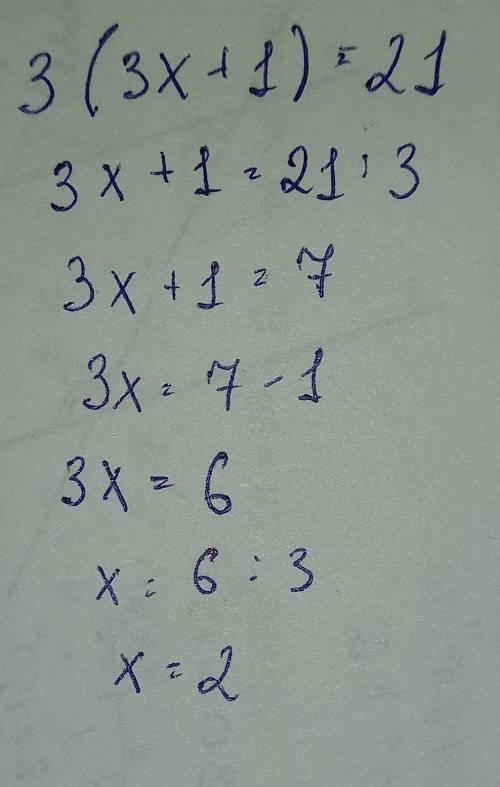 3(3x+1)=21
3x+1=21:3
3x+1=7
3x=7-1
3x=6
x=6:3
x=2